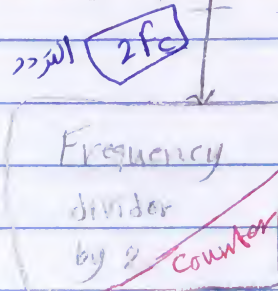 التردد 2fc
Frequency
divider
by 2 counter